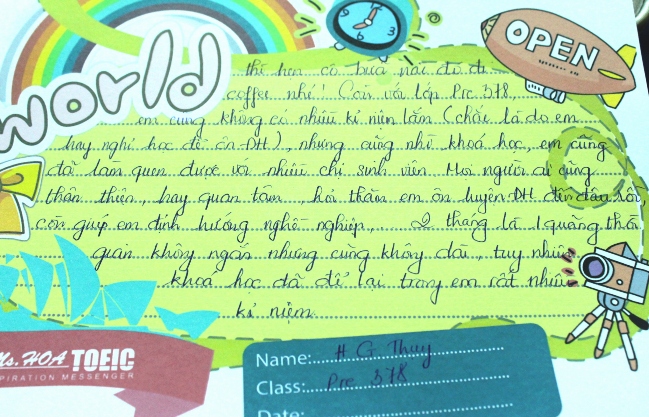 OPEN
world
thì hẹn cô bữa nào đó đi
coffee nhé! Còn với lớp Pre 378,
em cũng không có nhiều kỉ niệm lắm (chắc là do em
hay nghỉ học để ôn ĐH), nhưng cũng nhờ khoá học, em cũng
đã làm quen được với nhiều chị sinh viên. Mọi người ai cũng
thân thiện, hay quan tâm, hỏi thăm em ôn luyện ĐH đến đâu rồi,
còn giúp em định hướng nghề nghiệp,.. 2 tháng là 1 quãng thời
gian không ngắn nhưng cũng không dài, tuy nhiên
khoá học đã để lại trong em rất nhiều
kỉ niệm.
Ms. HOA TOEIC
SPIRATION MESSENGER
Name: H G Thuy
Class: Pre 378
Date: